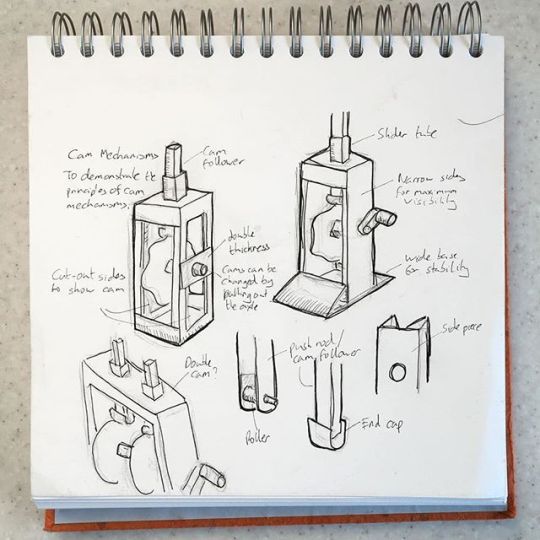 Cam Mechanisms
To demonstrate the
principles of cam
mechanisms.
Cam
follower
Cut-out sides
to show cam
double
thickness
Cams can be
changed by
pulling out
the axle
Slider tube
Narrow sides
for maximum
visibility
Wide base
for stability
Double
cam?
Roller
Push rod/
cam follower
End cap
Side piece